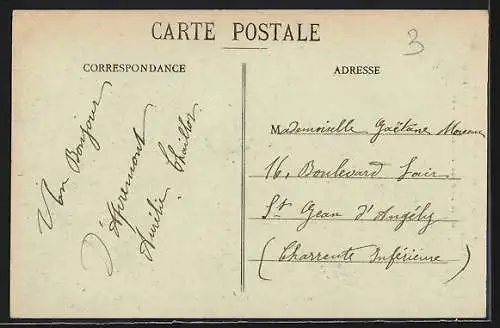 CARTE POSTALE
3
CORRESPONDANCE
Un Bonjour
D'Apremont
Aurélie Chaillou
ADRESSE
Mademoiselle Gaëtane Moreau
16, Boulevard Lair
St Jean d'Angély
(Charente Inférieure)